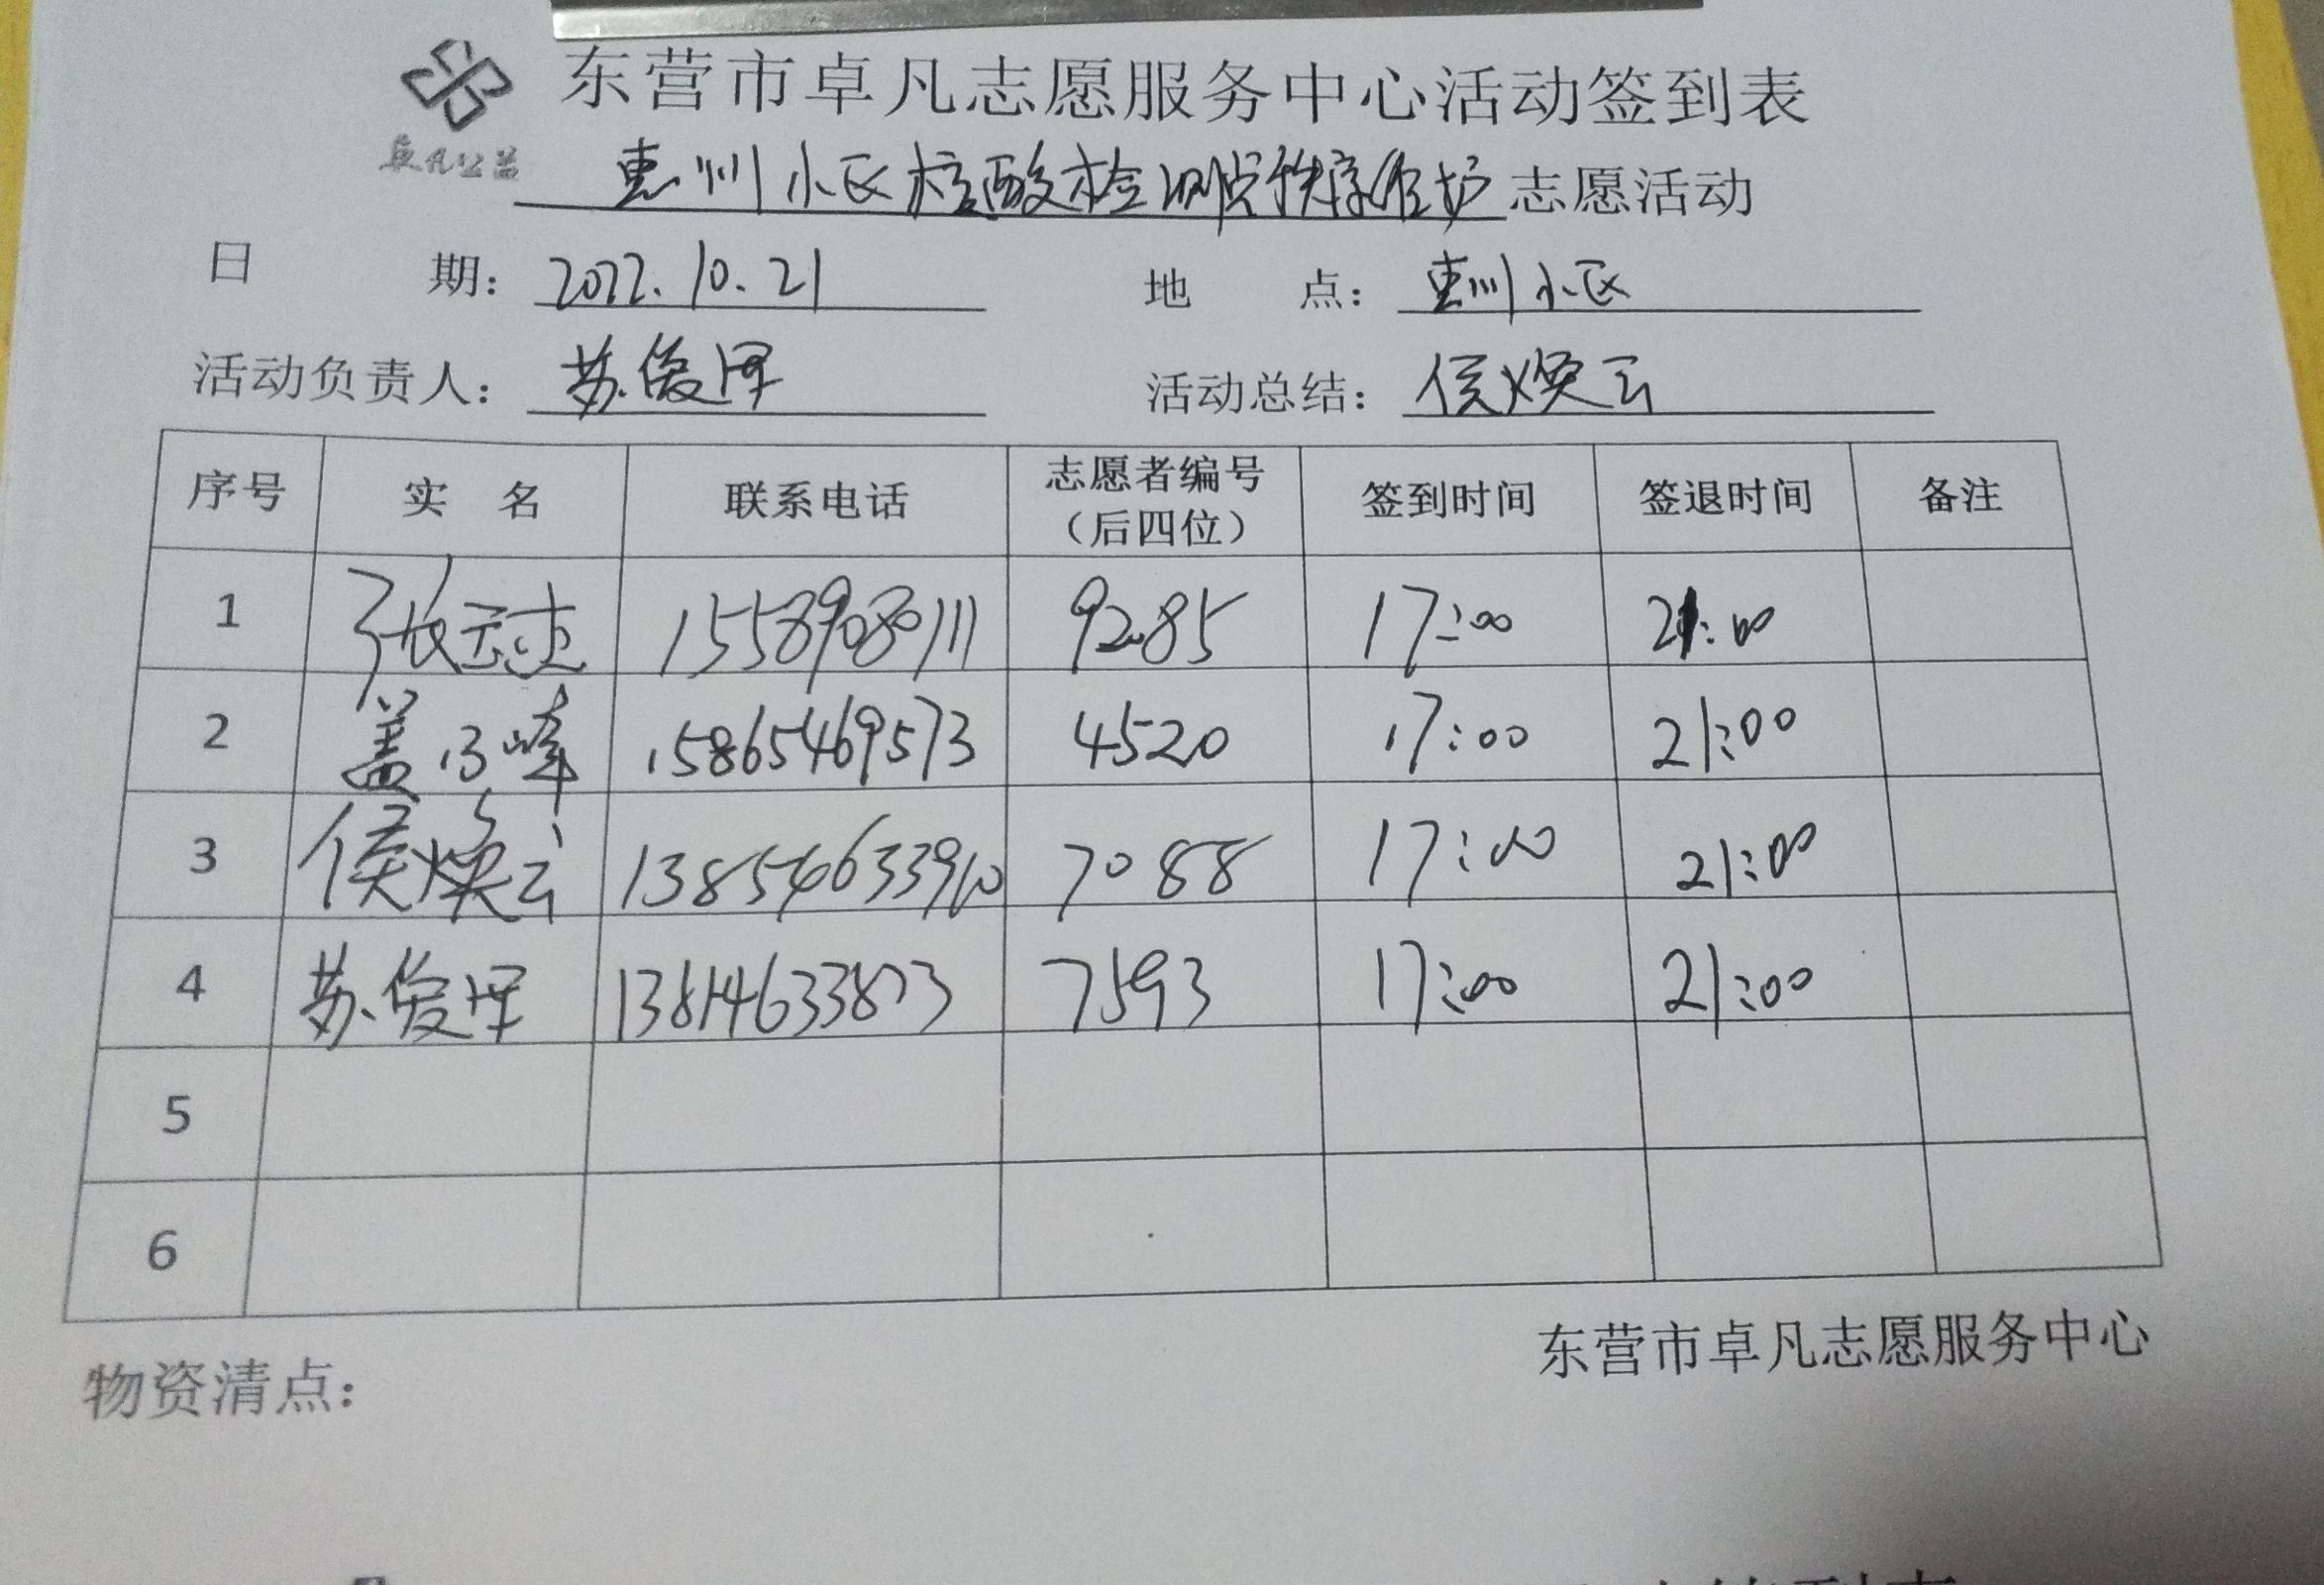 东营市卓凡志愿服务中心活动签到表
卓凡公益
惠州小区核酸检测点秩序维护志愿活动
日 期： 2022.10.21 地 点： 惠州小区
活动负责人： 苏俊泽 活动总结： 侯焕云
序号 实 名 联系电话 志愿者编号（后四位） 签到时间 签退时间 备注
1 张云 15589080111 9285 17:00 21:00
2 盖 峰 15865469573 4520 17:00 21:00
3 侯焕云 7088 17:00 21:00
4 苏俊泽 7593 17:00 21:00
5
6
东营市卓凡志愿服务中心
物资清点：